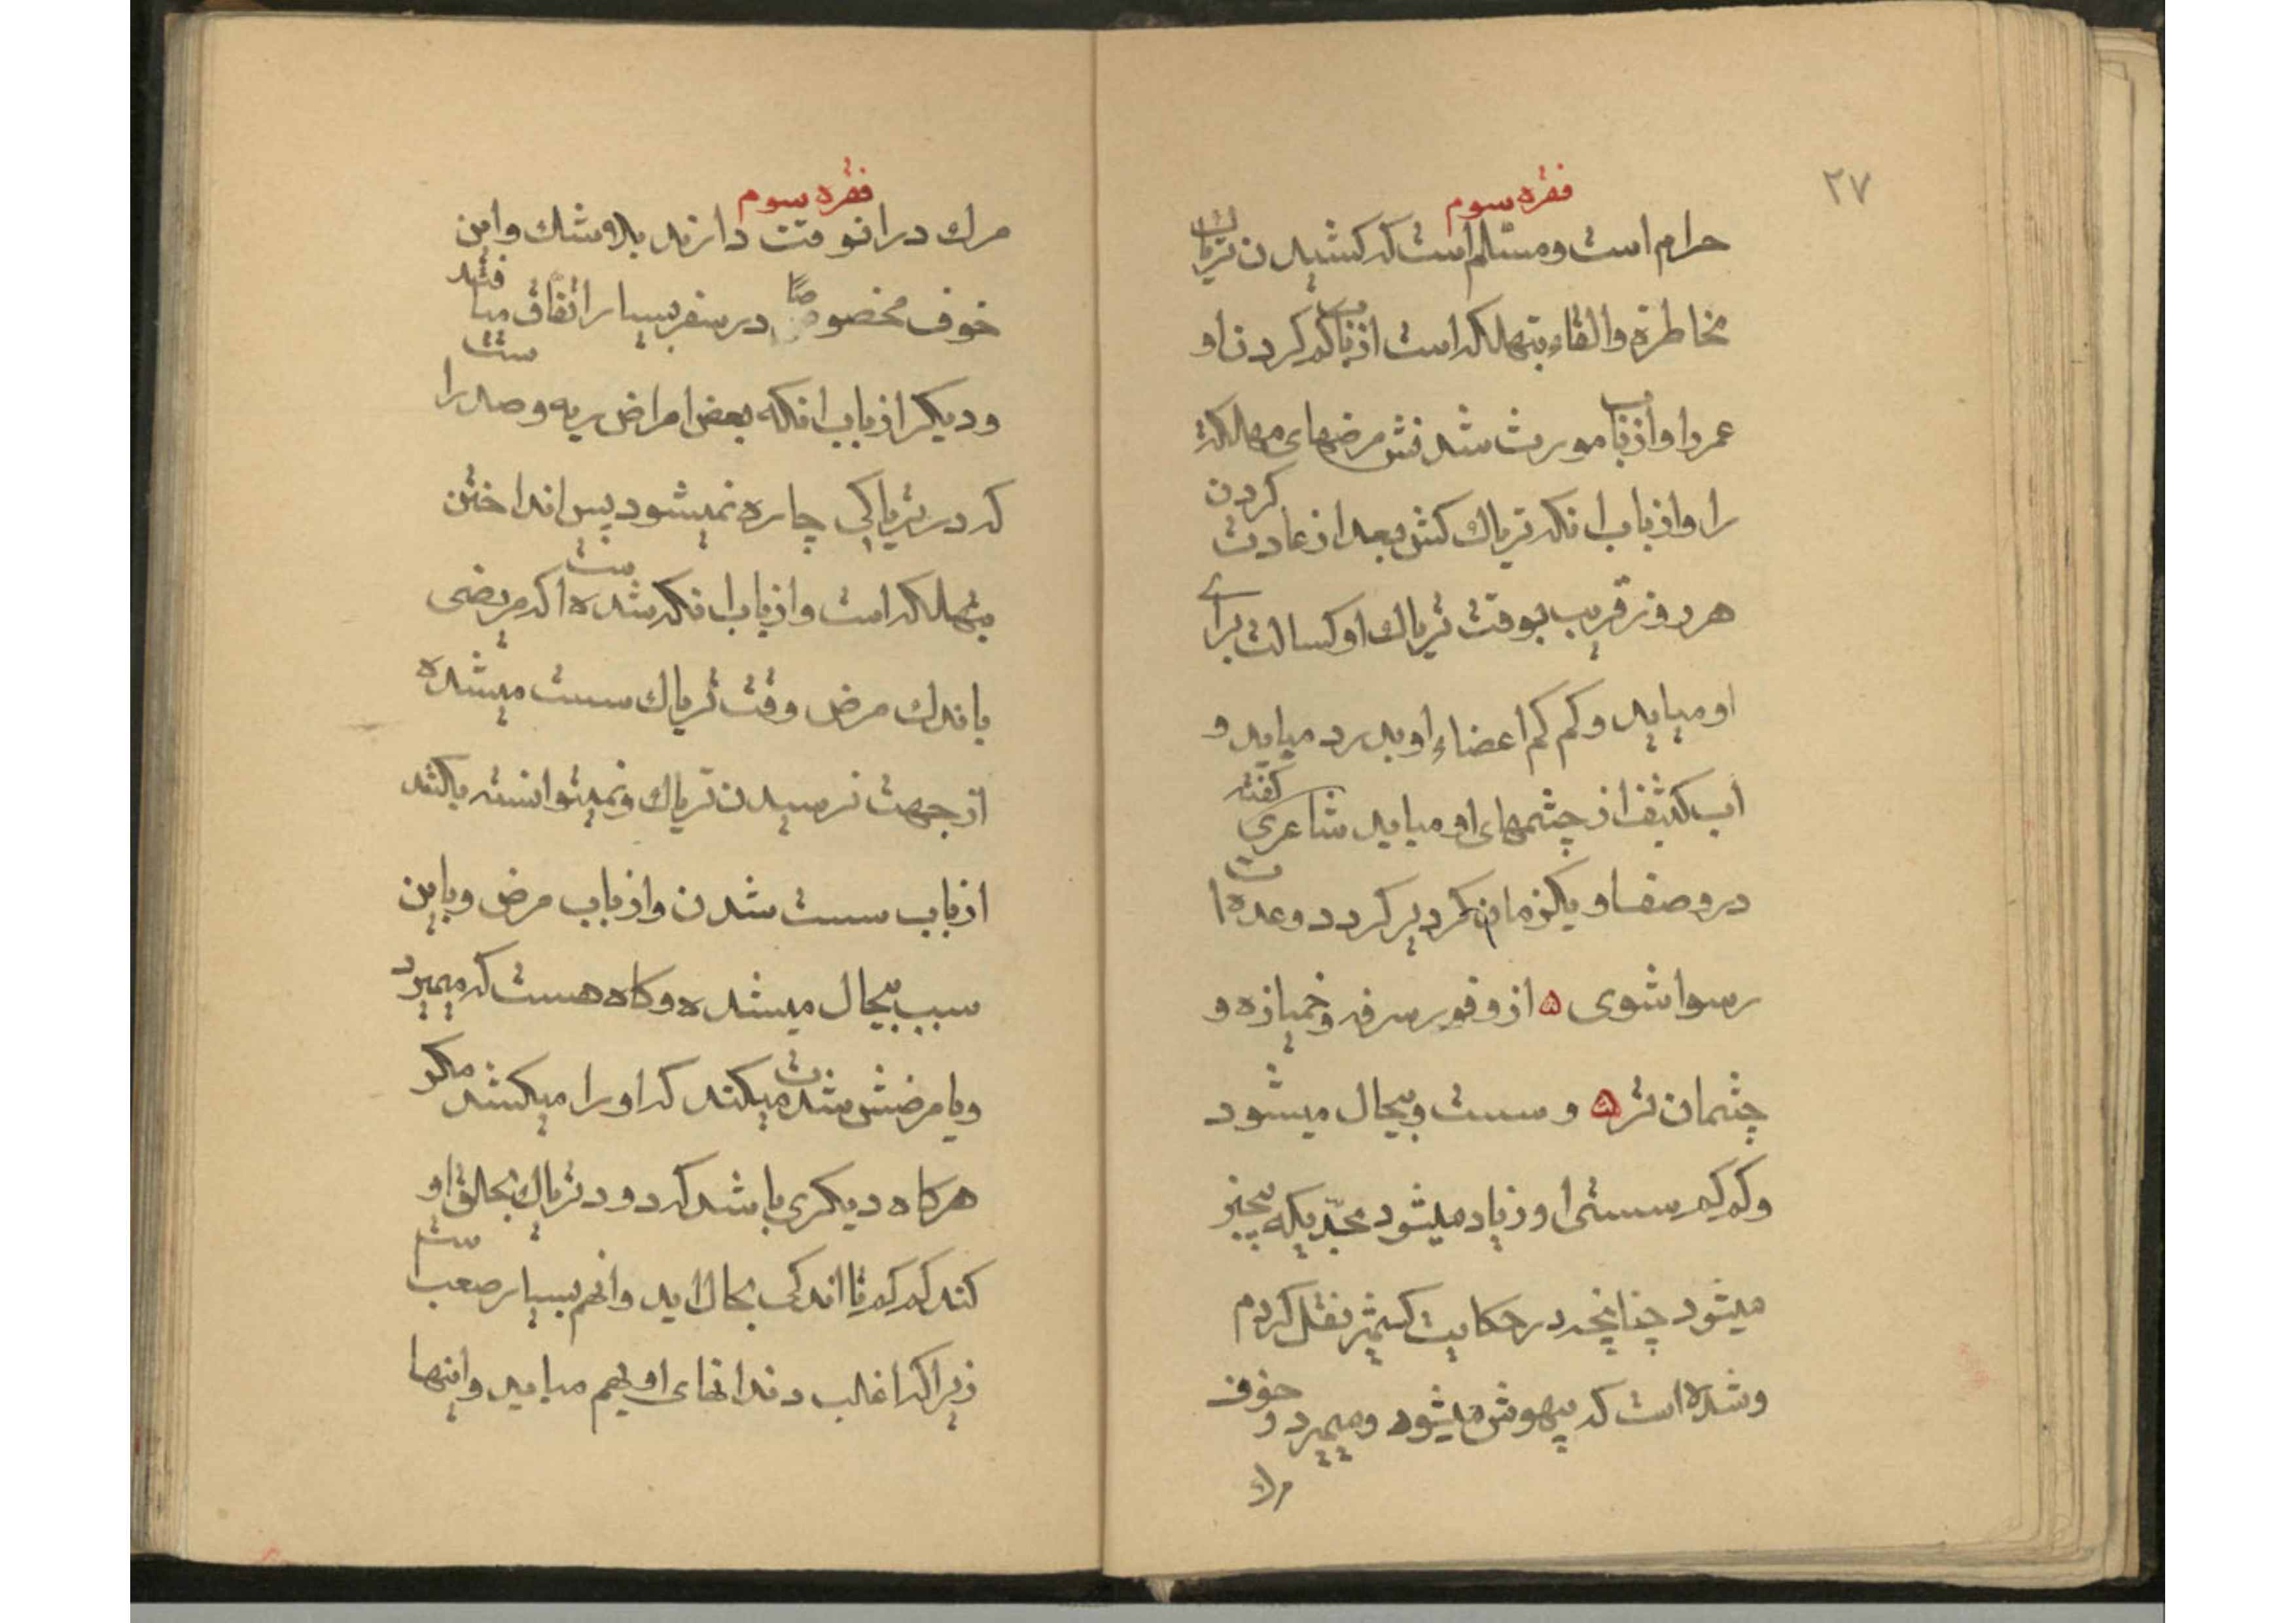 ۲۷
فقره سوم
حرام است و مسلم است که کشیدن تریاک
مخاطره والقاء بتهلکه است از باب کم کردن او
عمر را و از باب مورث شدنش مرضهای مهلکه
را و از باب انکه تریاک کش بعد از عادت کردن
هر روز قریب بوقت تریاک او کسالت برای
او میاید و کم کم اعضاء او بدرد میاید و
اب کثیف از چشمهای او میاید شاعری گفته
در وصف او یکزمان کر دیر کردد وعده ات
رسوا شوی ه از وفور سرفه و خمیازه و
چشمان تر ه و سست و بیحال میشود
و کم کم سستی او زیاد میشود بحدیکه بیچیز
میشود چنانچه در حکایت کشمیر نقل کردم
و شده است که بیهوش میشود و میمیرد و خوف
مرك
فقره سوم
مرك در انوقت دارند بلا شك و این
خوف مخصوصًا در سفر بسیار اتفاق میافتد
و دیکر از باب انکه بعض امراض ریه و صدر راست
که در تریاکی چاره نمیشود پس انداختن
بتهلکه است و از باب انکه شده است اکر مریضی
باندك مرض وقت تریاك سست میشده
از جهت نرسیدن تریاك و نمیتوانسته بکشد
از باب سست شدن و از باب مرض و باین
سبب بیحال میشده و کاه هست که میمیرد
و یا مرضش شدت میکند که او را میکشد مکر
هرکاه دیکری باشد که دود تریاك بحلق او
کند کم کم تا اندکی بحال اید و انهم بسیار صعب است
زیرا که اغلب دندانهای او بهم میاید و اینها